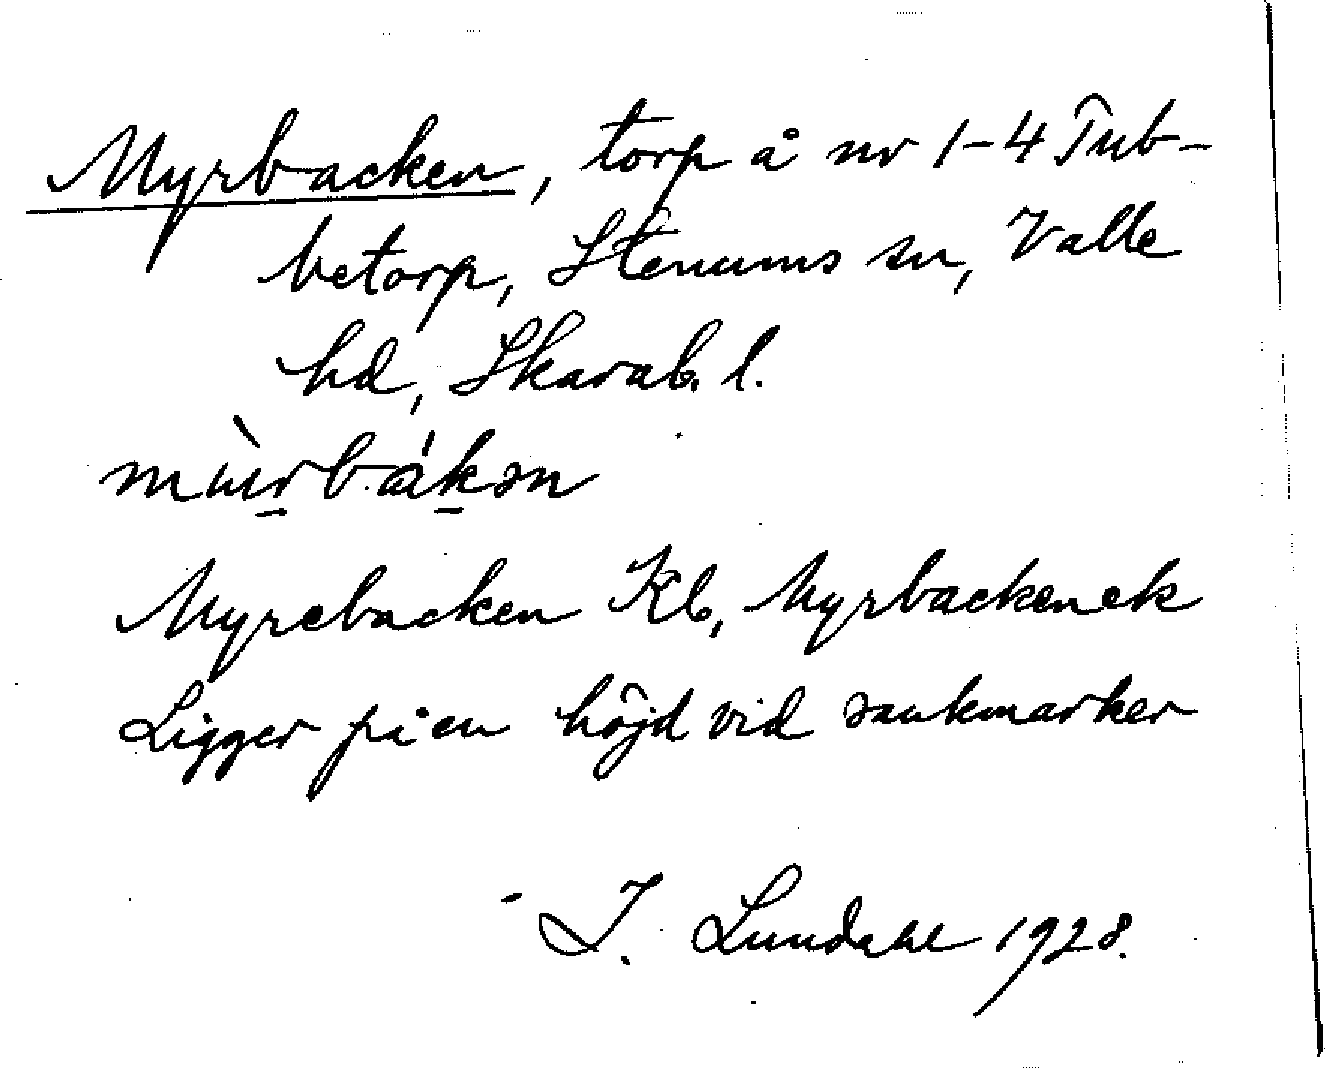 Myrbacken, torp å nr 1-4 Tub-
betorp, Stenums sn, Valle
hd, Skarab. l.
Myrebacken Kb, Myrbacken ek
Ligger på en höjd vid sankmarker
I. Lundahl 1928.